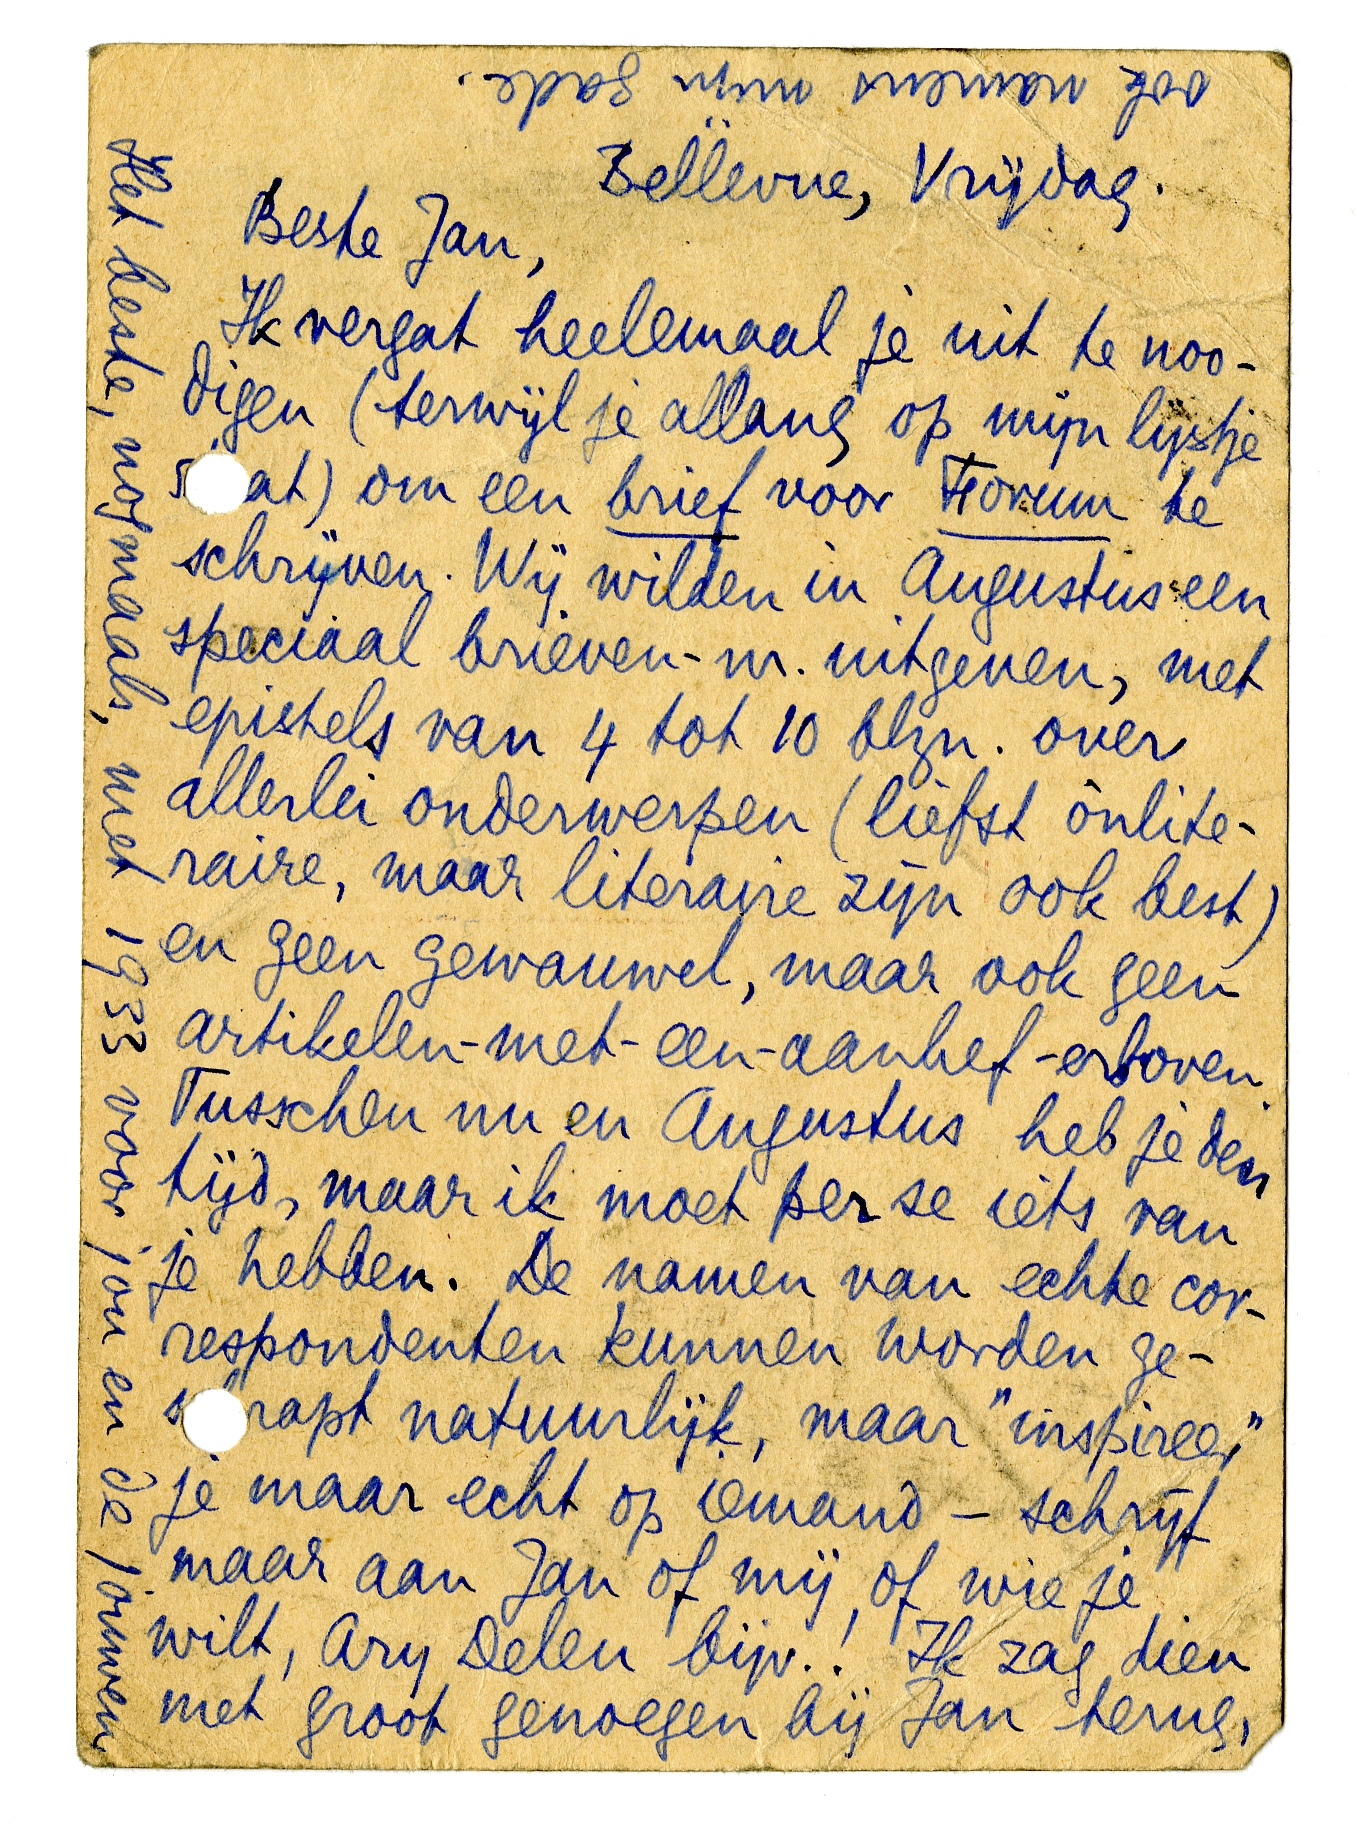 Bellevue, Vrijdag.
Beste Jan,
Ik vergat heelemaal je uit te noo-
digen (terwijl je allang op mijn lijstje
s at) om een brief voor Forum te
schrijven. Wij wilden in Augustus een
speciaal brieven-nr. uitgeven, met
epistels van 4 tot 10 blzn. over
allerlei onderwerpen (liefst ònlite-
raire, maar literaire zijn ook best)
en geen gewauwel, maar ook geen
artikelen-met-een-aanhef-erboven.
Tusschen nu en Augustus heb je den
tijd, maar ik moet per se iets van
je hebben. De namen van echte cor-
respondenten kunnen worden ge-
s rapt natuurlijk, maar "inspireer"
je maar echt op iemand – schrijf
maar aan Jan of mij, of wie je
wilt, Ary Delen bijv.! Ik zag dien
met groot genoegen bij Jan terug.
Het beste, nogmaals, met 1933 voor jou en de jouwen
ook namens mijn gade.